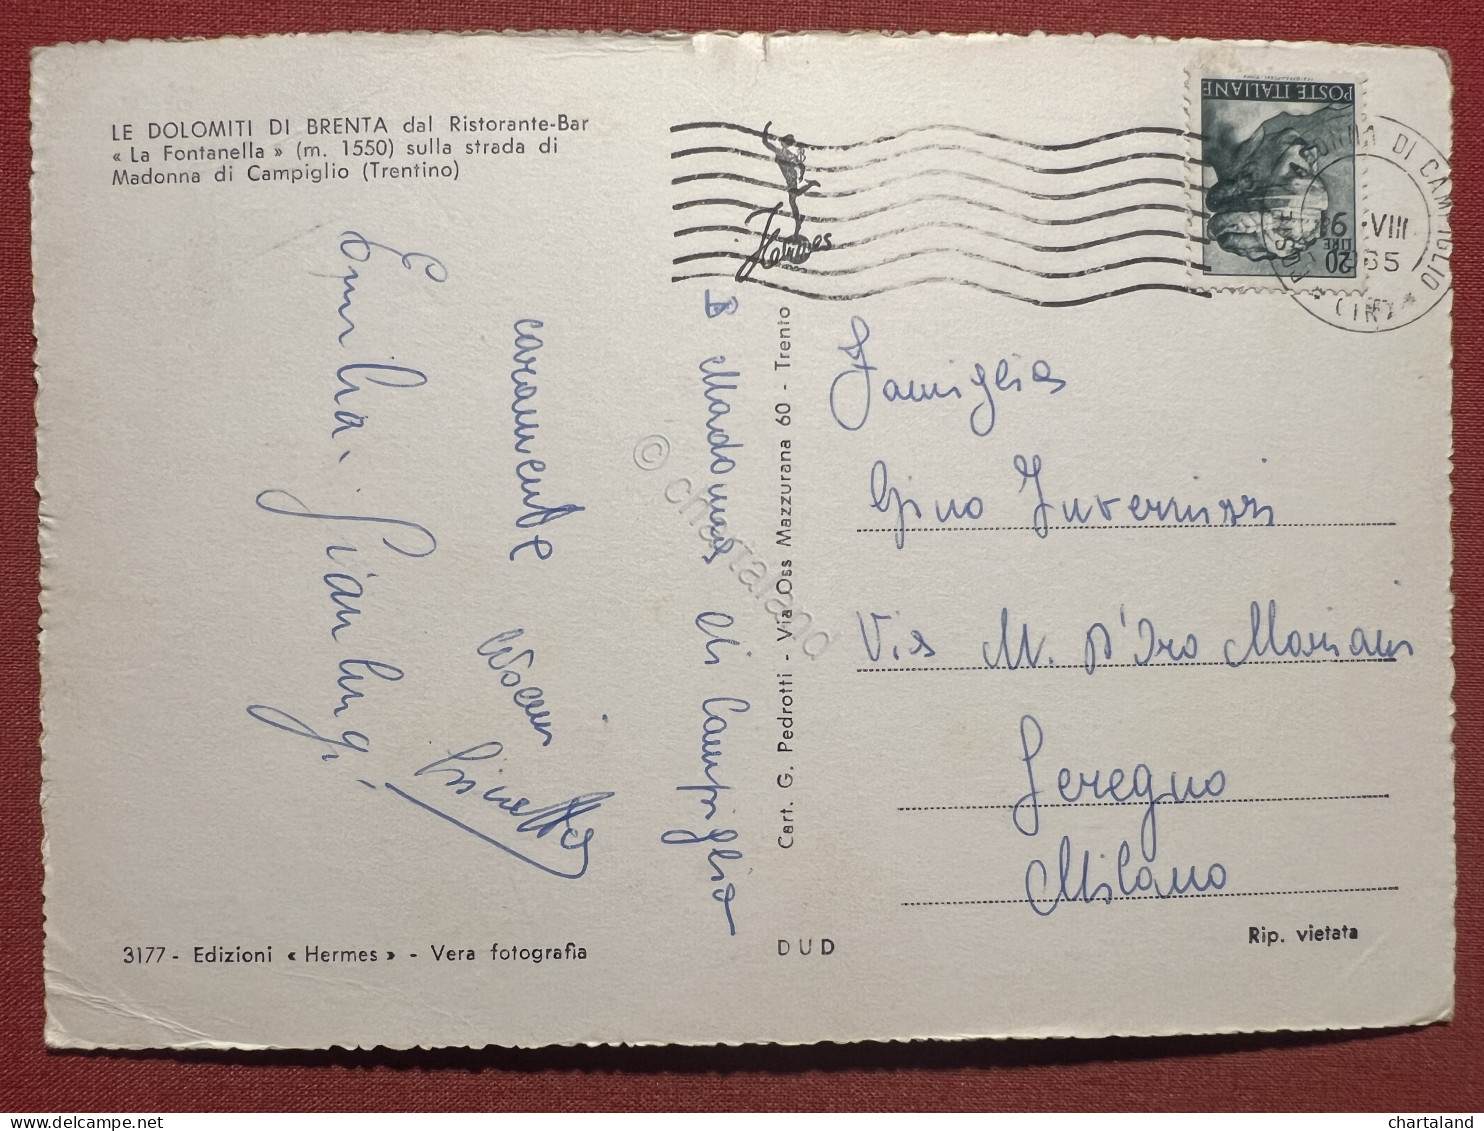 LE DOLOMITI DI BRENTA dal Ristorante-Bar
« La Fontanella » (m. 1550) sulla strada di
Madonna di Campiglio (Trentino)
Hermes
POSTE ITALIANE
LIRE 20
MADONNA DI CAMPIGLIO
VIII
65
Madonna di Campiglio
caramente
Ginetta
Emilia. Gianluigi
Cart. G. Pedrotti - Via Oss Mazzurana 60 - Trento
Famiglia
Gino Invernizzi
Via M. D'Oro Mariani
Seregno
Milano
3177 - Edizioni « Hermes » - Vera fotografia
DUD
Rip. vietata
© chartaland
chartaland